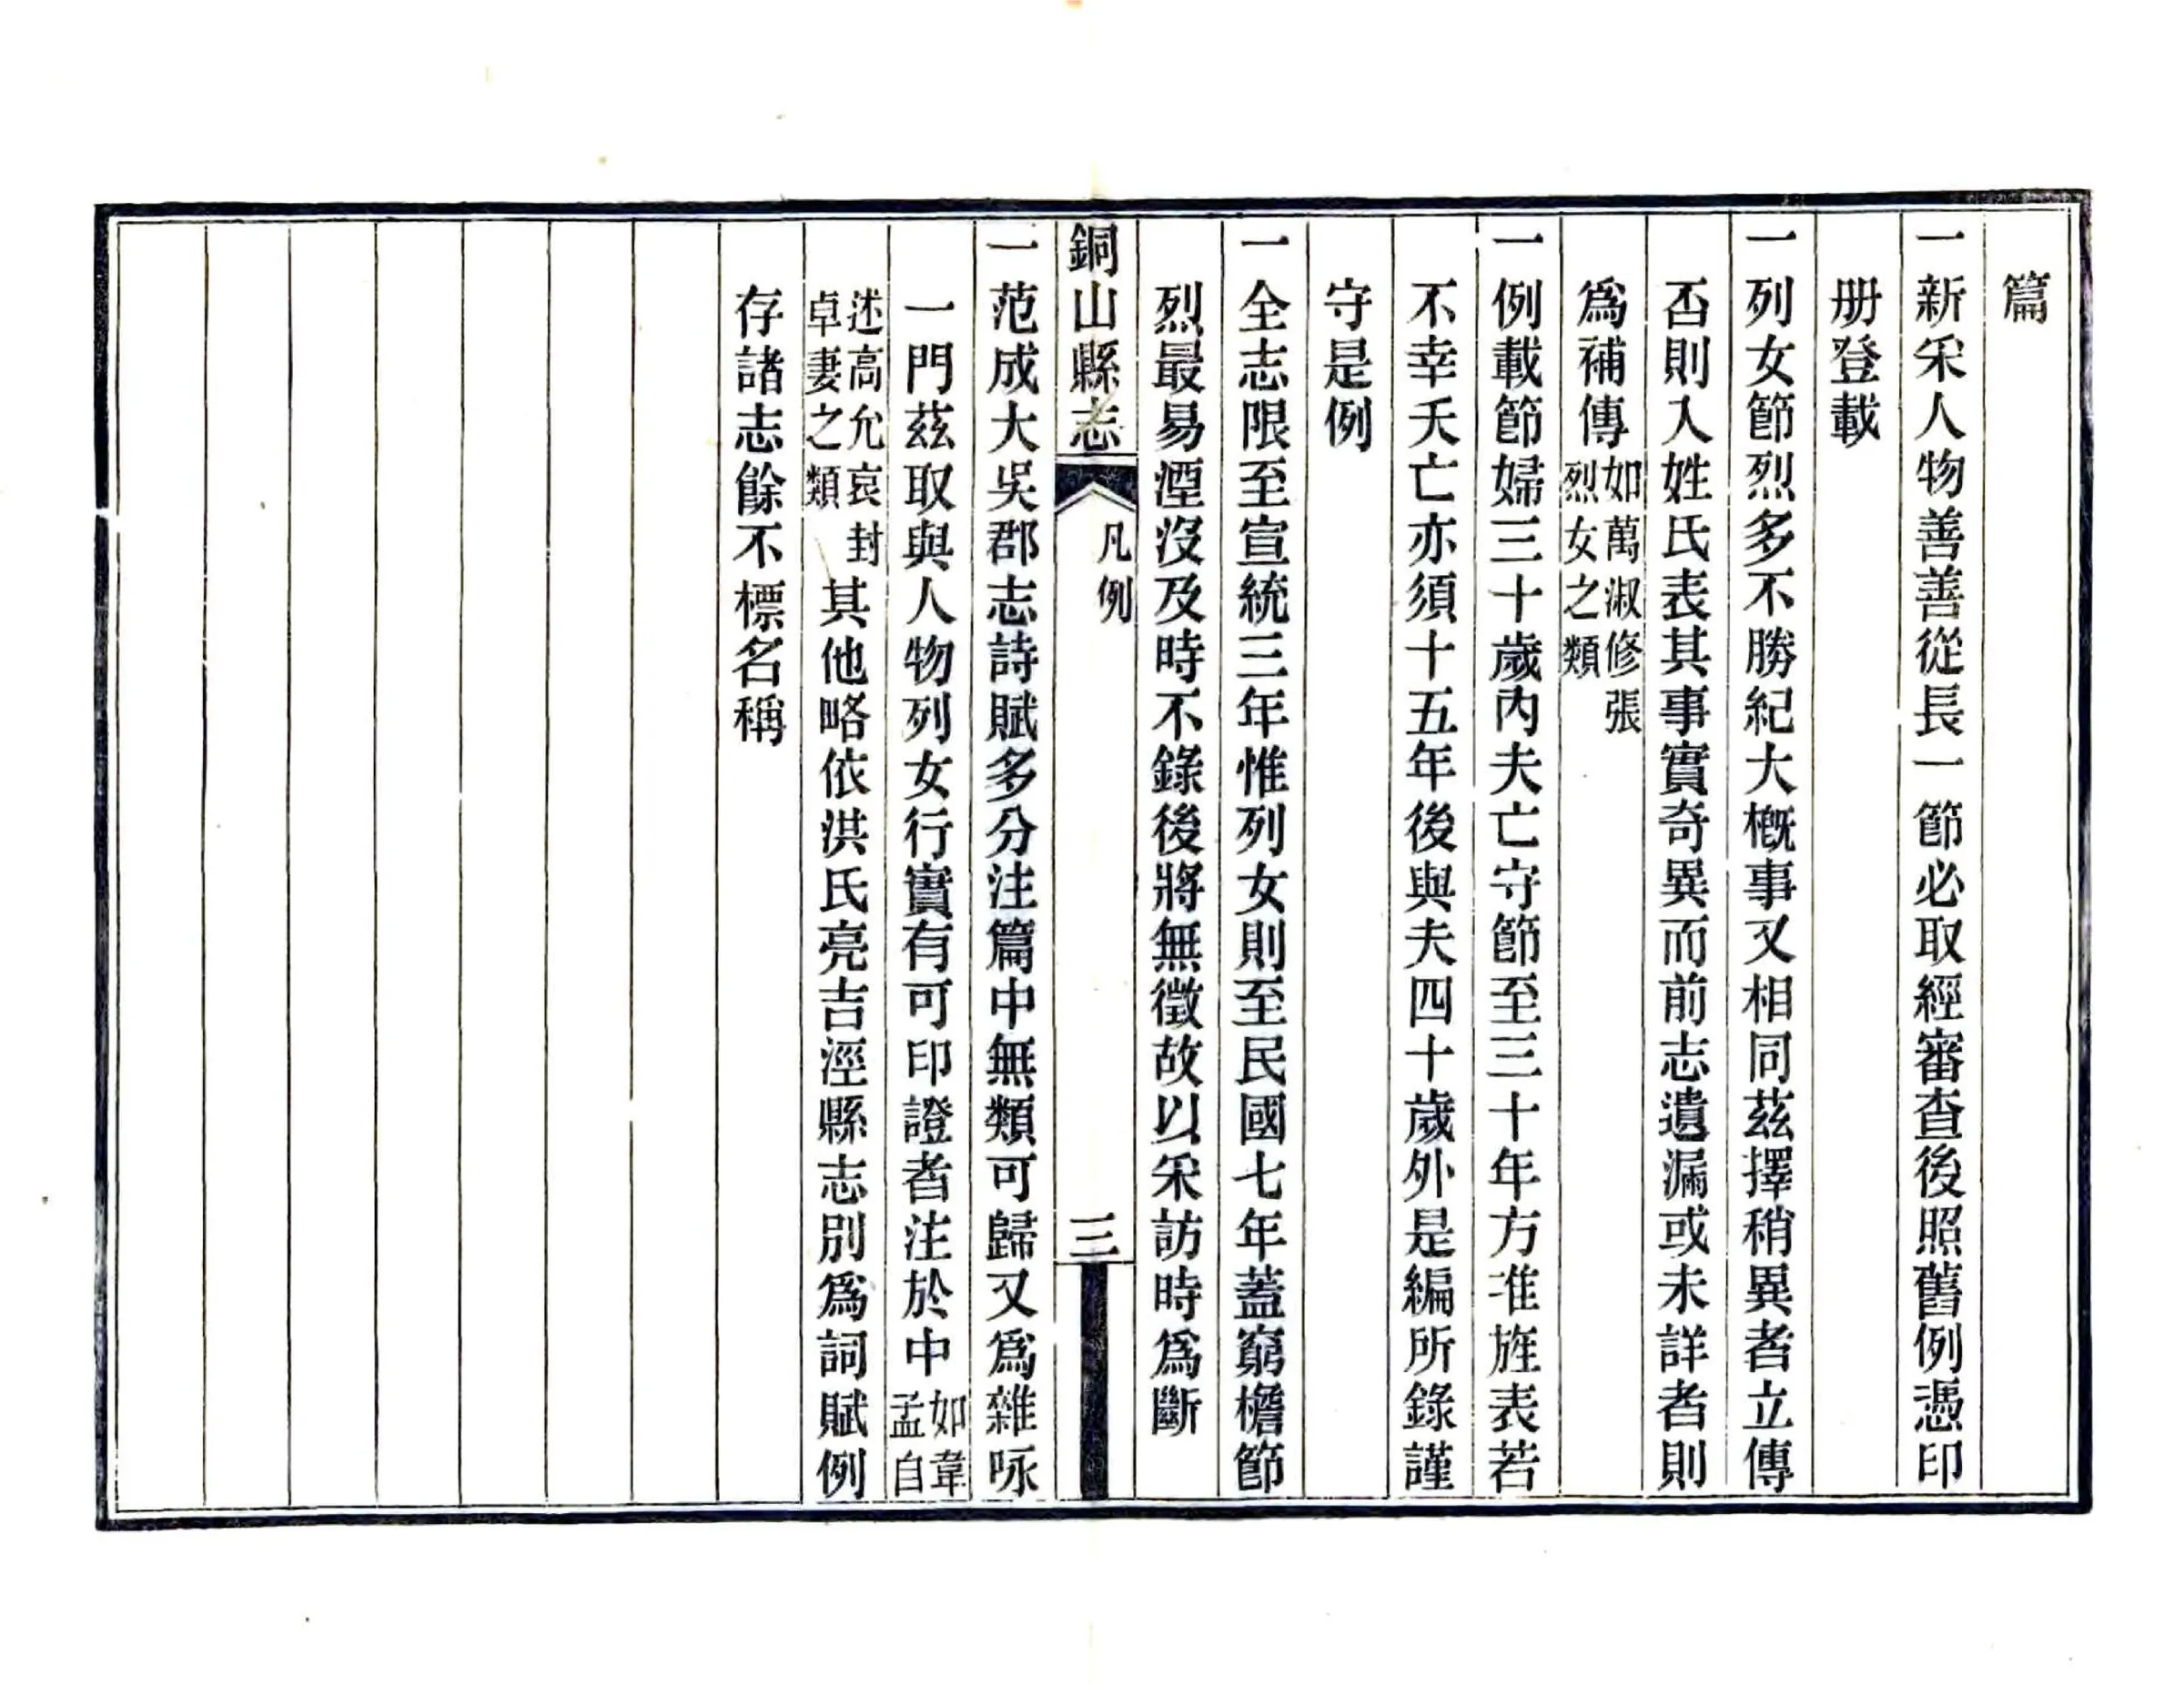 篇
一新采人物善善從長一節必取經審查後照舊例憑印
册登載
一列女節烈多不勝紀大概事又相同茲擇稍異者立傳
否則入姓氏表其事實奇異而前志遺漏或未詳者則
爲補傳如萬淑修張烈女之類
一例載節婦三十歲內夫亡守節至三十年方准旌表若
不幸夭亡亦須十五年後與夫四十歲外是編所錄謹
守是例
一全志限至宣統三年惟列女則至民國七年蓋窮檐節
烈最易湮沒及時不錄後將無徵故以采訪時爲斷
銅山縣志 凡例 三
一范成大吳郡志詩賦多分注篇中無類可歸又爲雜咏
一門茲取與人物列女行實有可印證者注於中如韋孟自
述高允哀封卓妻之類其他略依洪氏亮吉涇縣志別爲詞賦例
存諸志餘不標名稱